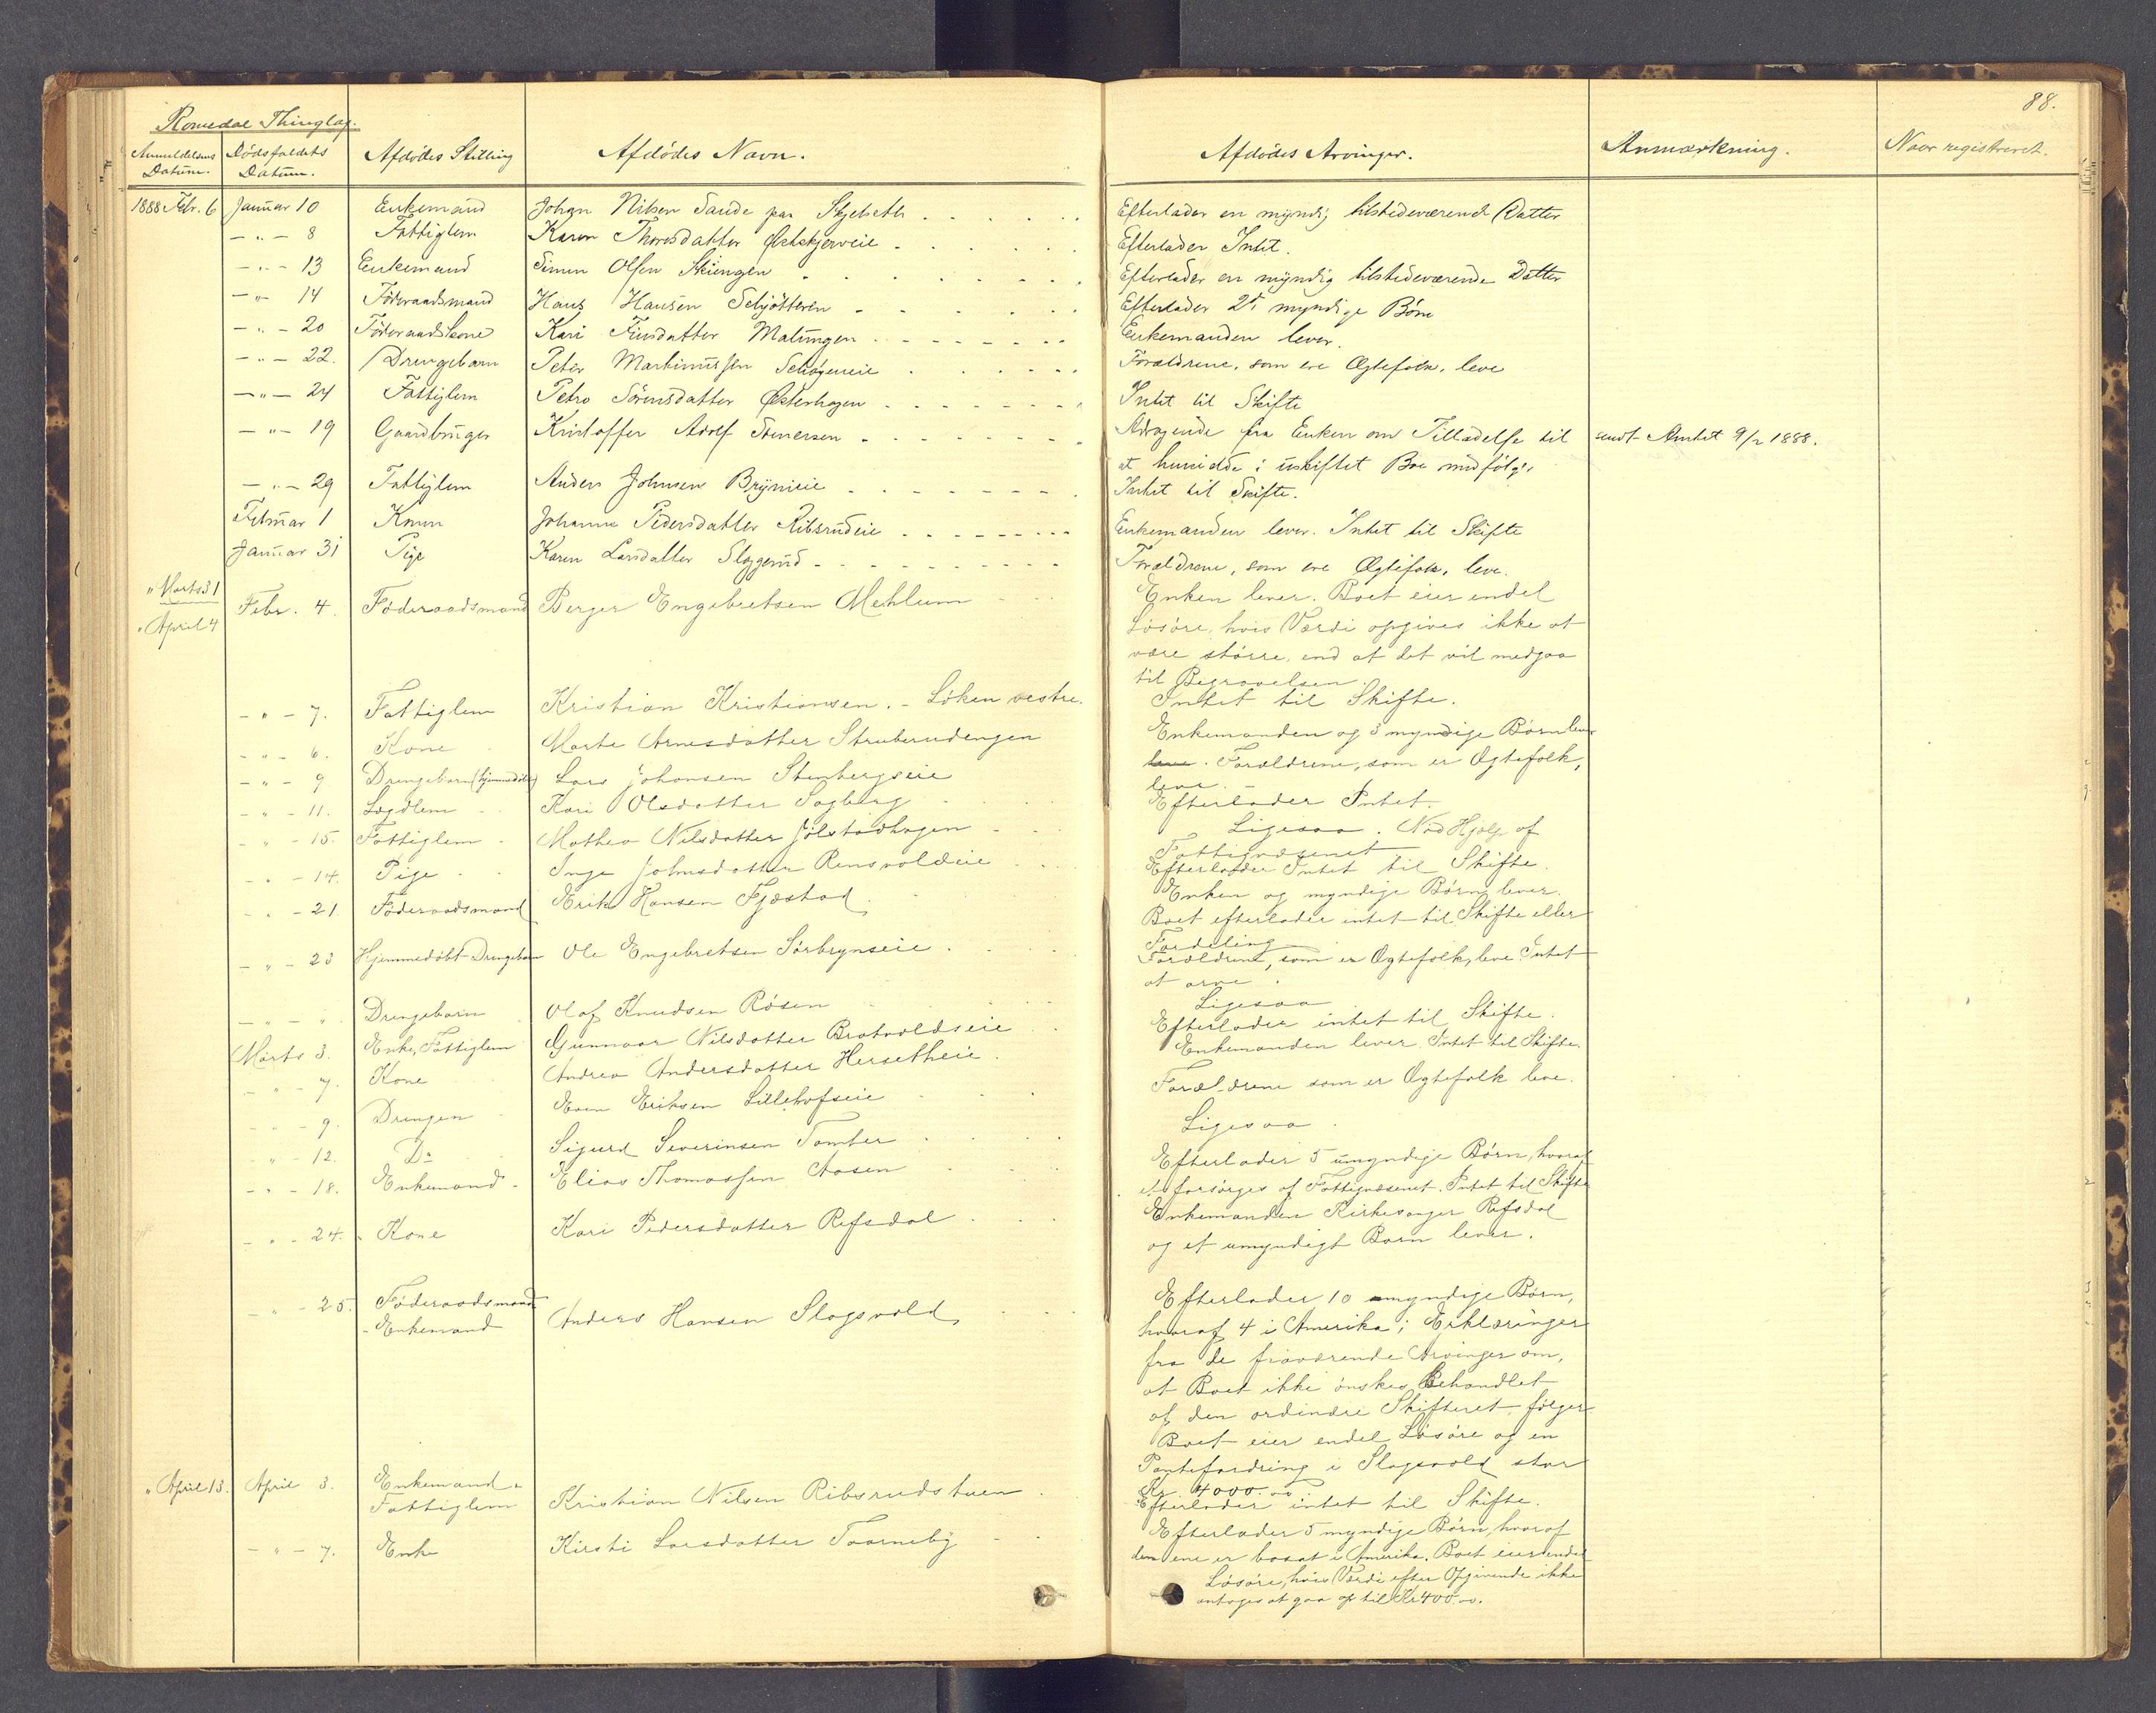 88.
Romedal Thinglag.
Anmeldelsens Datum. Dødsfaldets Datum. Afdødes Stilling Afdødes Navn. Afdødes Arvinger. Anmærkning. Naar registreret.
1888 Febr. 6 Januar 10 Enkemand Johan Nilsen Sande paa Efterlader en myndig tilstedeværende Datter
— " — 8 Fattiglem Karen Thoresdatter Efterlader Intet.
— " — 13 Enkemand Simen Olsen Skiengen Efterlader en myndig tilstedeværende Datter
— " — 14 Føderaadsmand Hans Hansen Schjøtteren Efterlader 2 myndige Børn
— " — 20 Føderaadskone Kari Finsdatter Matungen Enkemanden lever.
— " — 22. Drengebarn Peter Martinussen Forældrene, som ere Ægtefolk, leve
— " — 24 Fattiglem Petro Sørensdatter Østerhagen Intet til Skifte
— " — 19 Gaardbruger Kristoffer Adolf Stenersen Andragende fra Enken om Tilladelse til sendt Amtet 9/2 1888.
at hensidde i uskiftet Bo medfølger
— " — 29 Fattiglem Anders Johnsen Brynieie Intet til Skifte.
Februar 1 Konen Johanne Pedersdatter Ribsrudeie Enkemanden lever. Intet til Skifte
Januar 31 Pige Karen Larsdatter Sloggerud Forældrene, som ere Ægtefolk, leve.
" Marts 31
" April 4 Febr. 4. Føderaadsmand Berger Engebretsen Mehlum Enken lever. Boet eier endel
Løsøre, hvis Værdi opgives ikke at
være større, end at det vil medgaa
til Begravelsen.
— " — 7. Fattiglem Kristian Kristiansen. - Løken vestre. Intet til Skifte.
— " — 6. Kone Marte Arnesdatter Struberudengen Enkemanden og 3 myndige Børn lever
— " — 9 Drengebarn (hjemmedøbt) Lars Johansen Stenbergseie leve. Forældrene, som er Ægtefolk,
leve. —
— " — 11. Lægdlem Kari Olsdatter Sagberg Efterlader Intet.
— " — 15. Fattiglem Mathea Nilsdatter Jølstadhagen Ligesaa. Nød Hjelp af
Fattigvæsenet
— " — 14. Pige Inga Johnsdatter Rensvoldeie Efterlader Intet til Skifte.
— " — 21 Føderaadsmand Erik Hansen Fjæstad Enken og myndige Børn lever.
Boet efterlader intet til Skifte eller
Fordeling
— " — 23 Hjemmedøbt Drengebarn Ole Engebretsen Sørbrynseie Forældrene, som er Ægtefolk, leve. Intet
at arve.
— " — " Drengebarn Olaf Knudsen Røsen Ligesaa
Marts 3. Enke, Fattiglem Gunnaar Nilsdatter Bratvoldseie Efterlader intet til Skifte.
— " — 7. Kone Andrea Andersdatter Hersetheie Enkemanden lever. Intet til Skifte.
— " — 9. Drengen Even Eriksen Lillehofseie Forældrene som er Ægtefolk leve.
— " — 12. Do Sigurd Severinsen Tomter Ligesaa.
— " — 18. Enkemand Elias Thomassen Aasen Efterlader 5 umyndige Børn, hvoraf
forsørges af Fattigvæsenet. Intet til Skifte
— " — 24. Kone Kari Pedersdatter Refsdal Enkemanden Kirkesanger Refsdal
og et umyndigt Barn lever.
— " — 25. Føderaadsmand
- Enkemand Anders Hansen Slagsvold Efterlader 10 myndige Børn,
hvoraf 4 i Amerika; Erklæringer
fra de fraværende Arvinger om,
at Boet ikke ønskes Behandlet
af den ordinære Skifteret følger.
Boet eier endel Løsøre og en
Pantefordring i Slagsvold stor
Kr 4000.00.
" April 13. April 3. Enkemand.
Fattiglem Kristian Nilsen Ribsrudstuen Efterlader intet til Skifte.
— " — 7. Enke Kirsti Larsdatter Taarneby Efterlader 5 myndige Børn, hvoraf
den ene er bosat i Amerika. Boet eier endel
Løsøre, hvis Værdi efter Opgivende ikke
antages at gaa op til Kr 400.00.